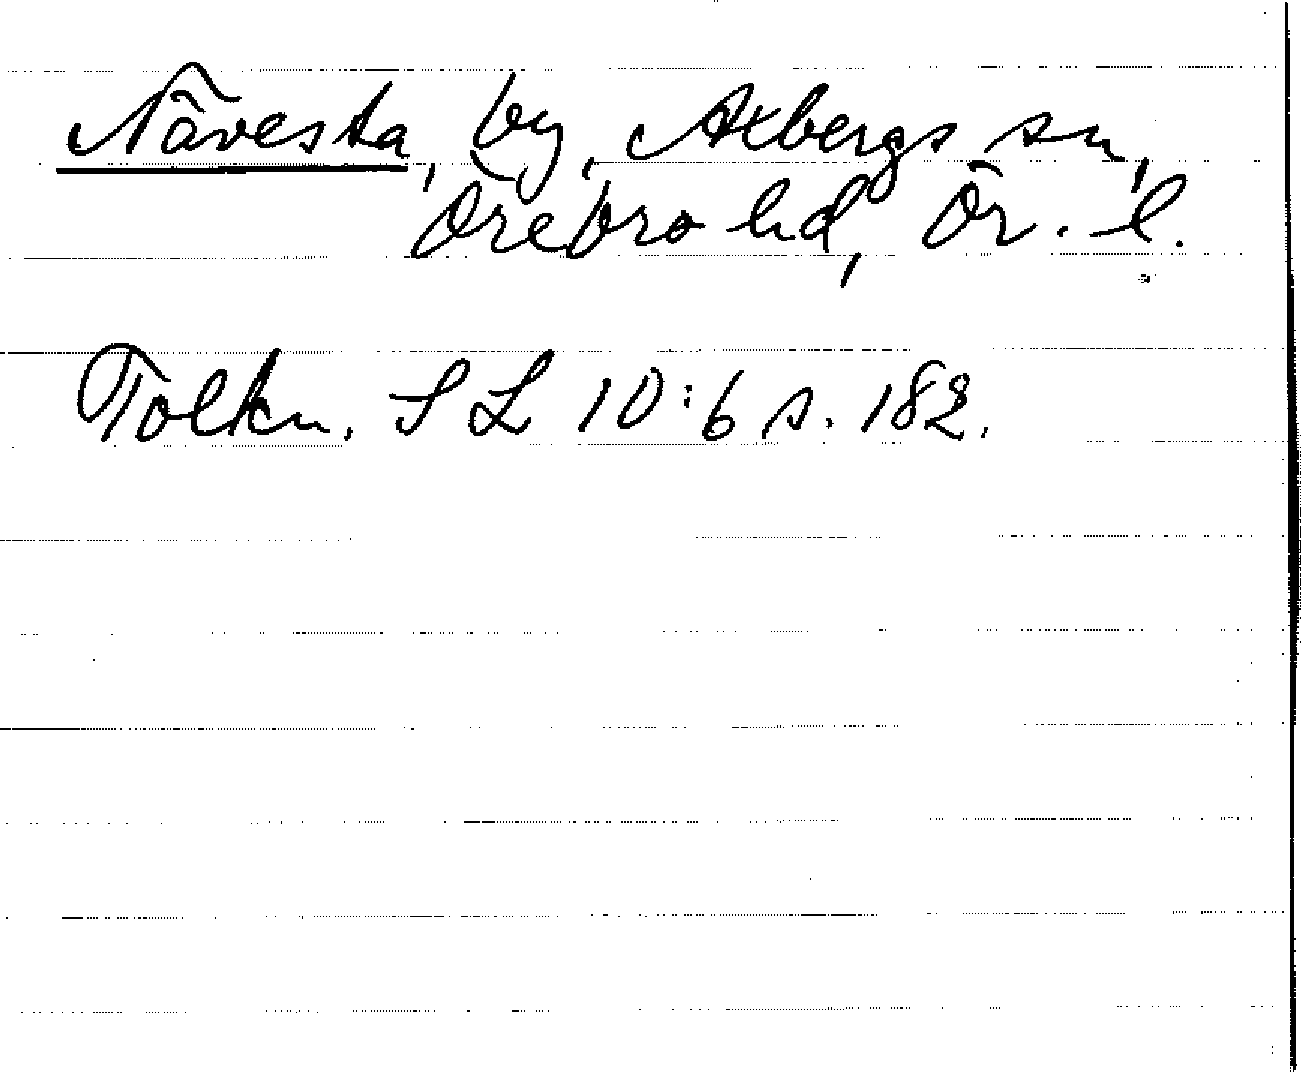 Nävesta, by, Axbergs sn,
Örebro hd, Ör. l.
Tolkn. SL 10:6 s. 182.